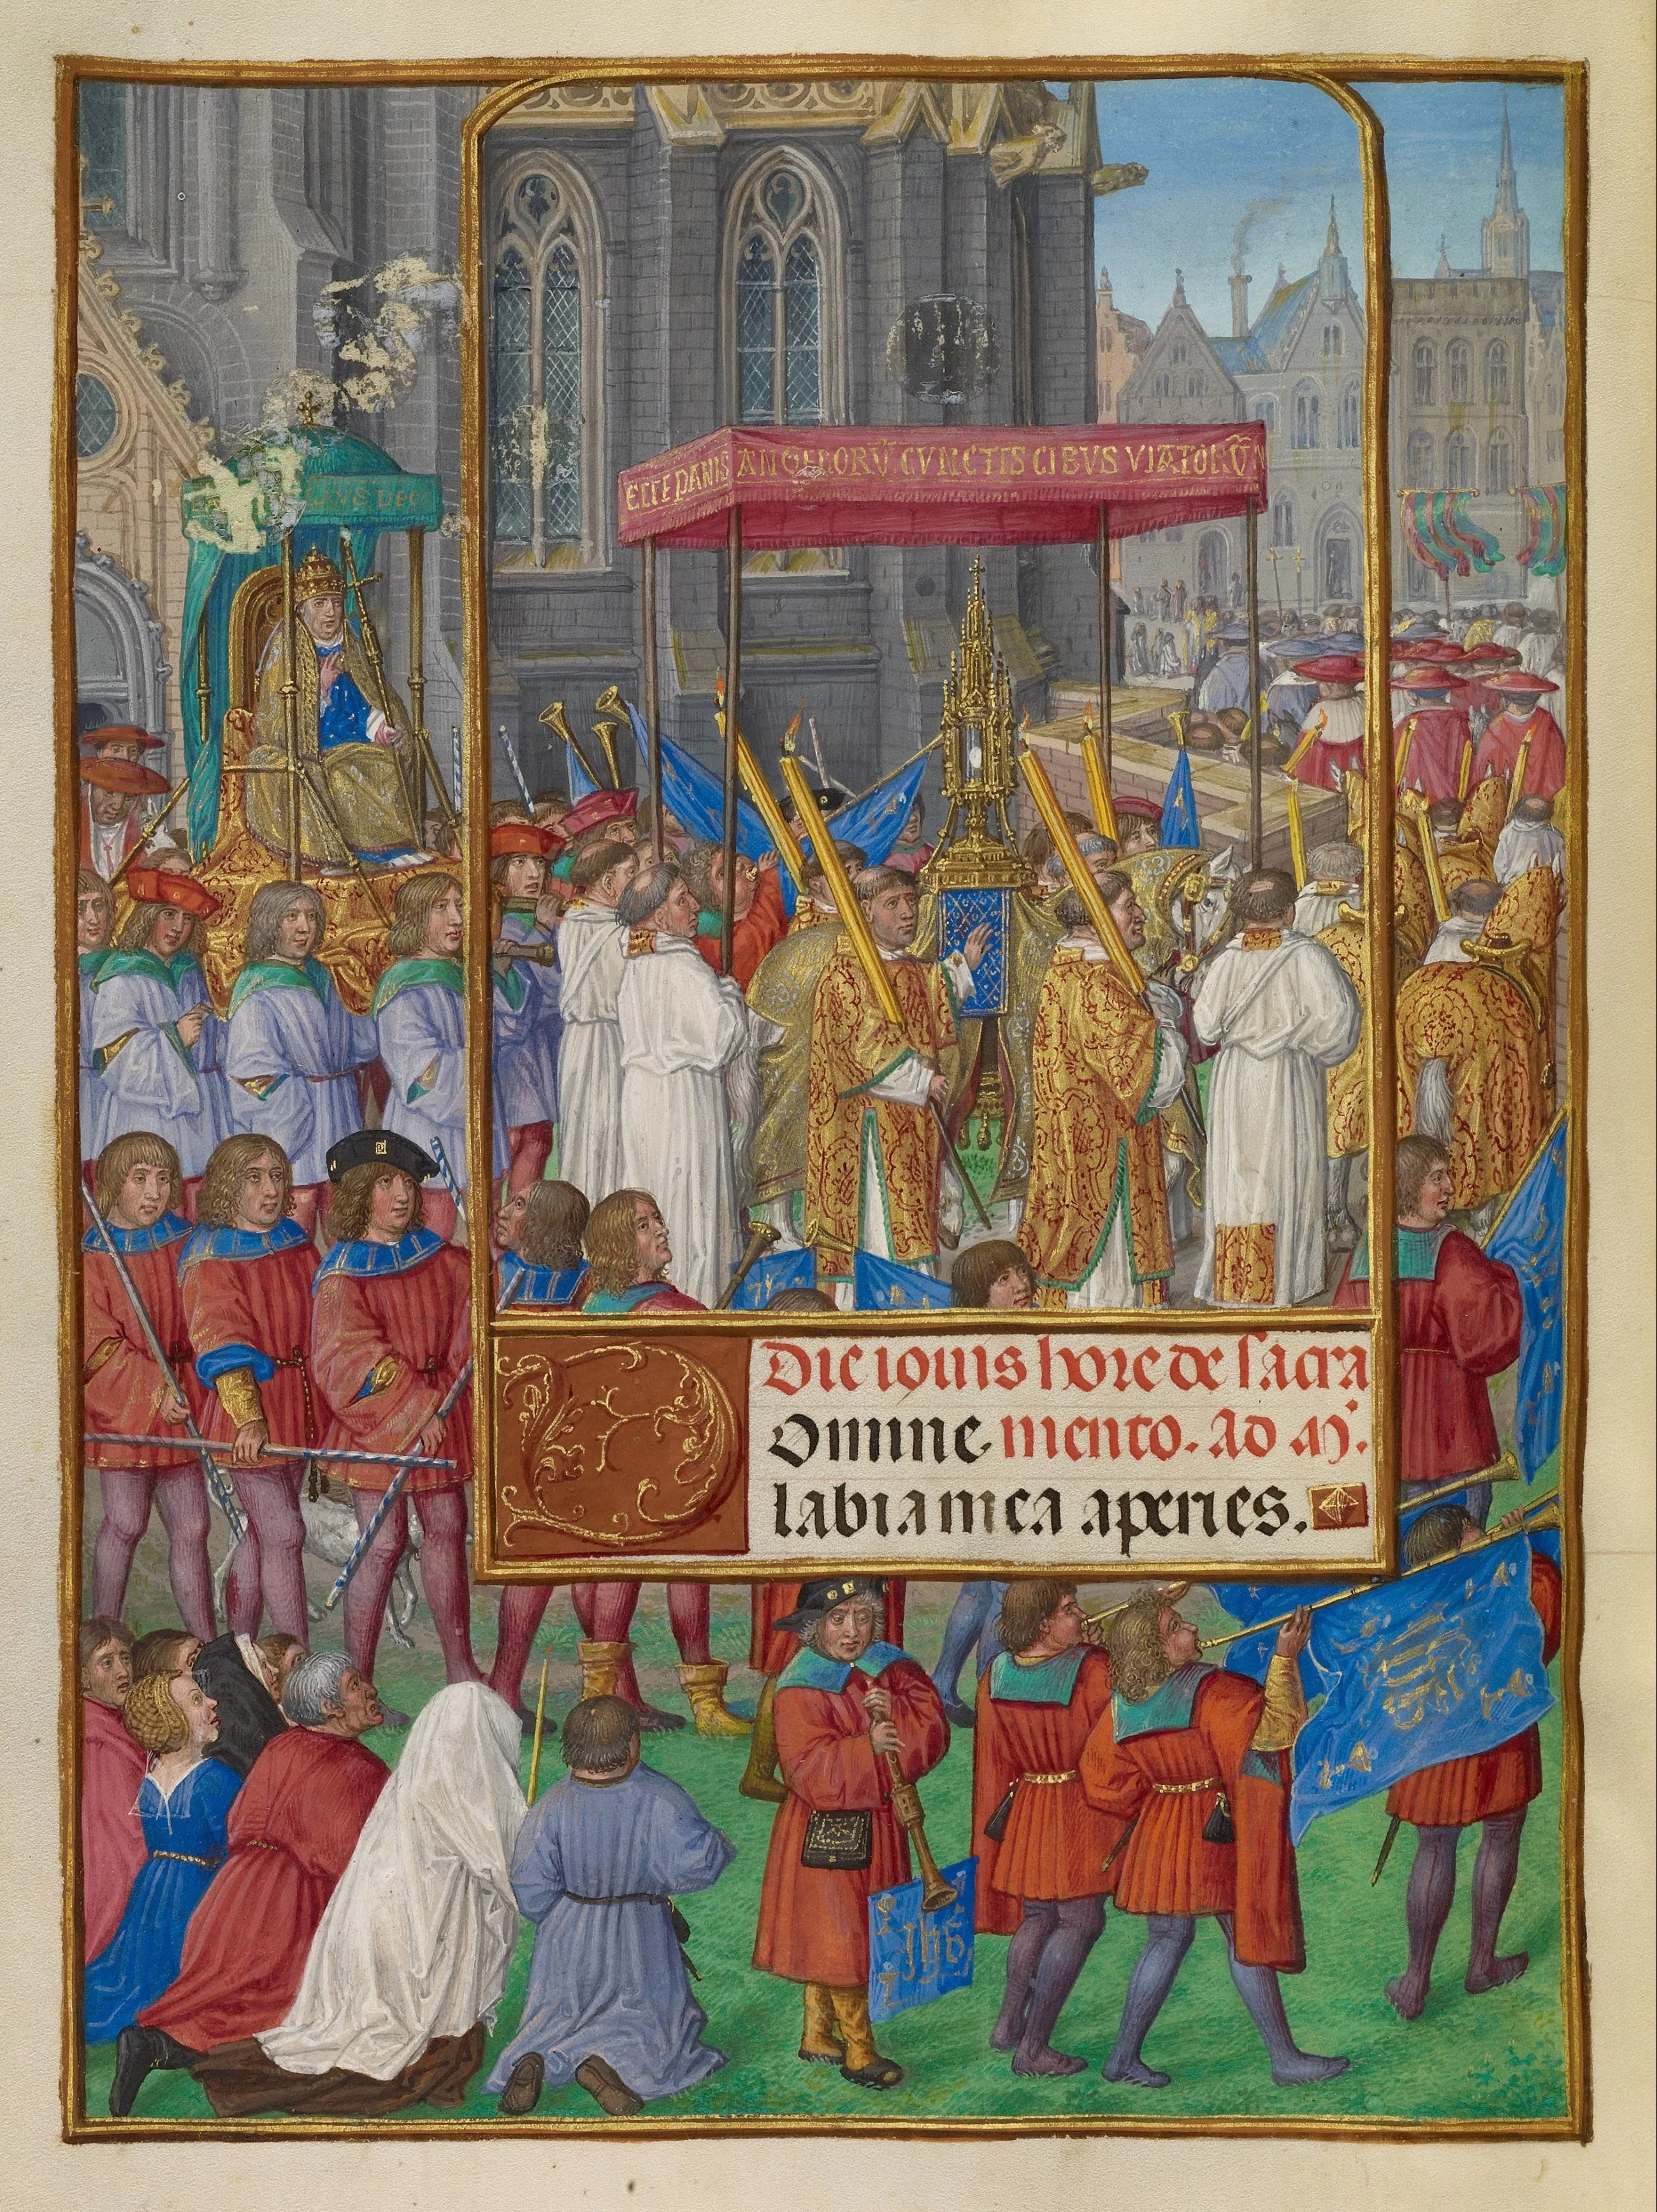 ECCE PANIS ANGELORŪ CVNCTIS CIBVS VIATORŪ
Die iouis hore de sacra
Domine mento. Ad M
labia mea aperies.
ihs